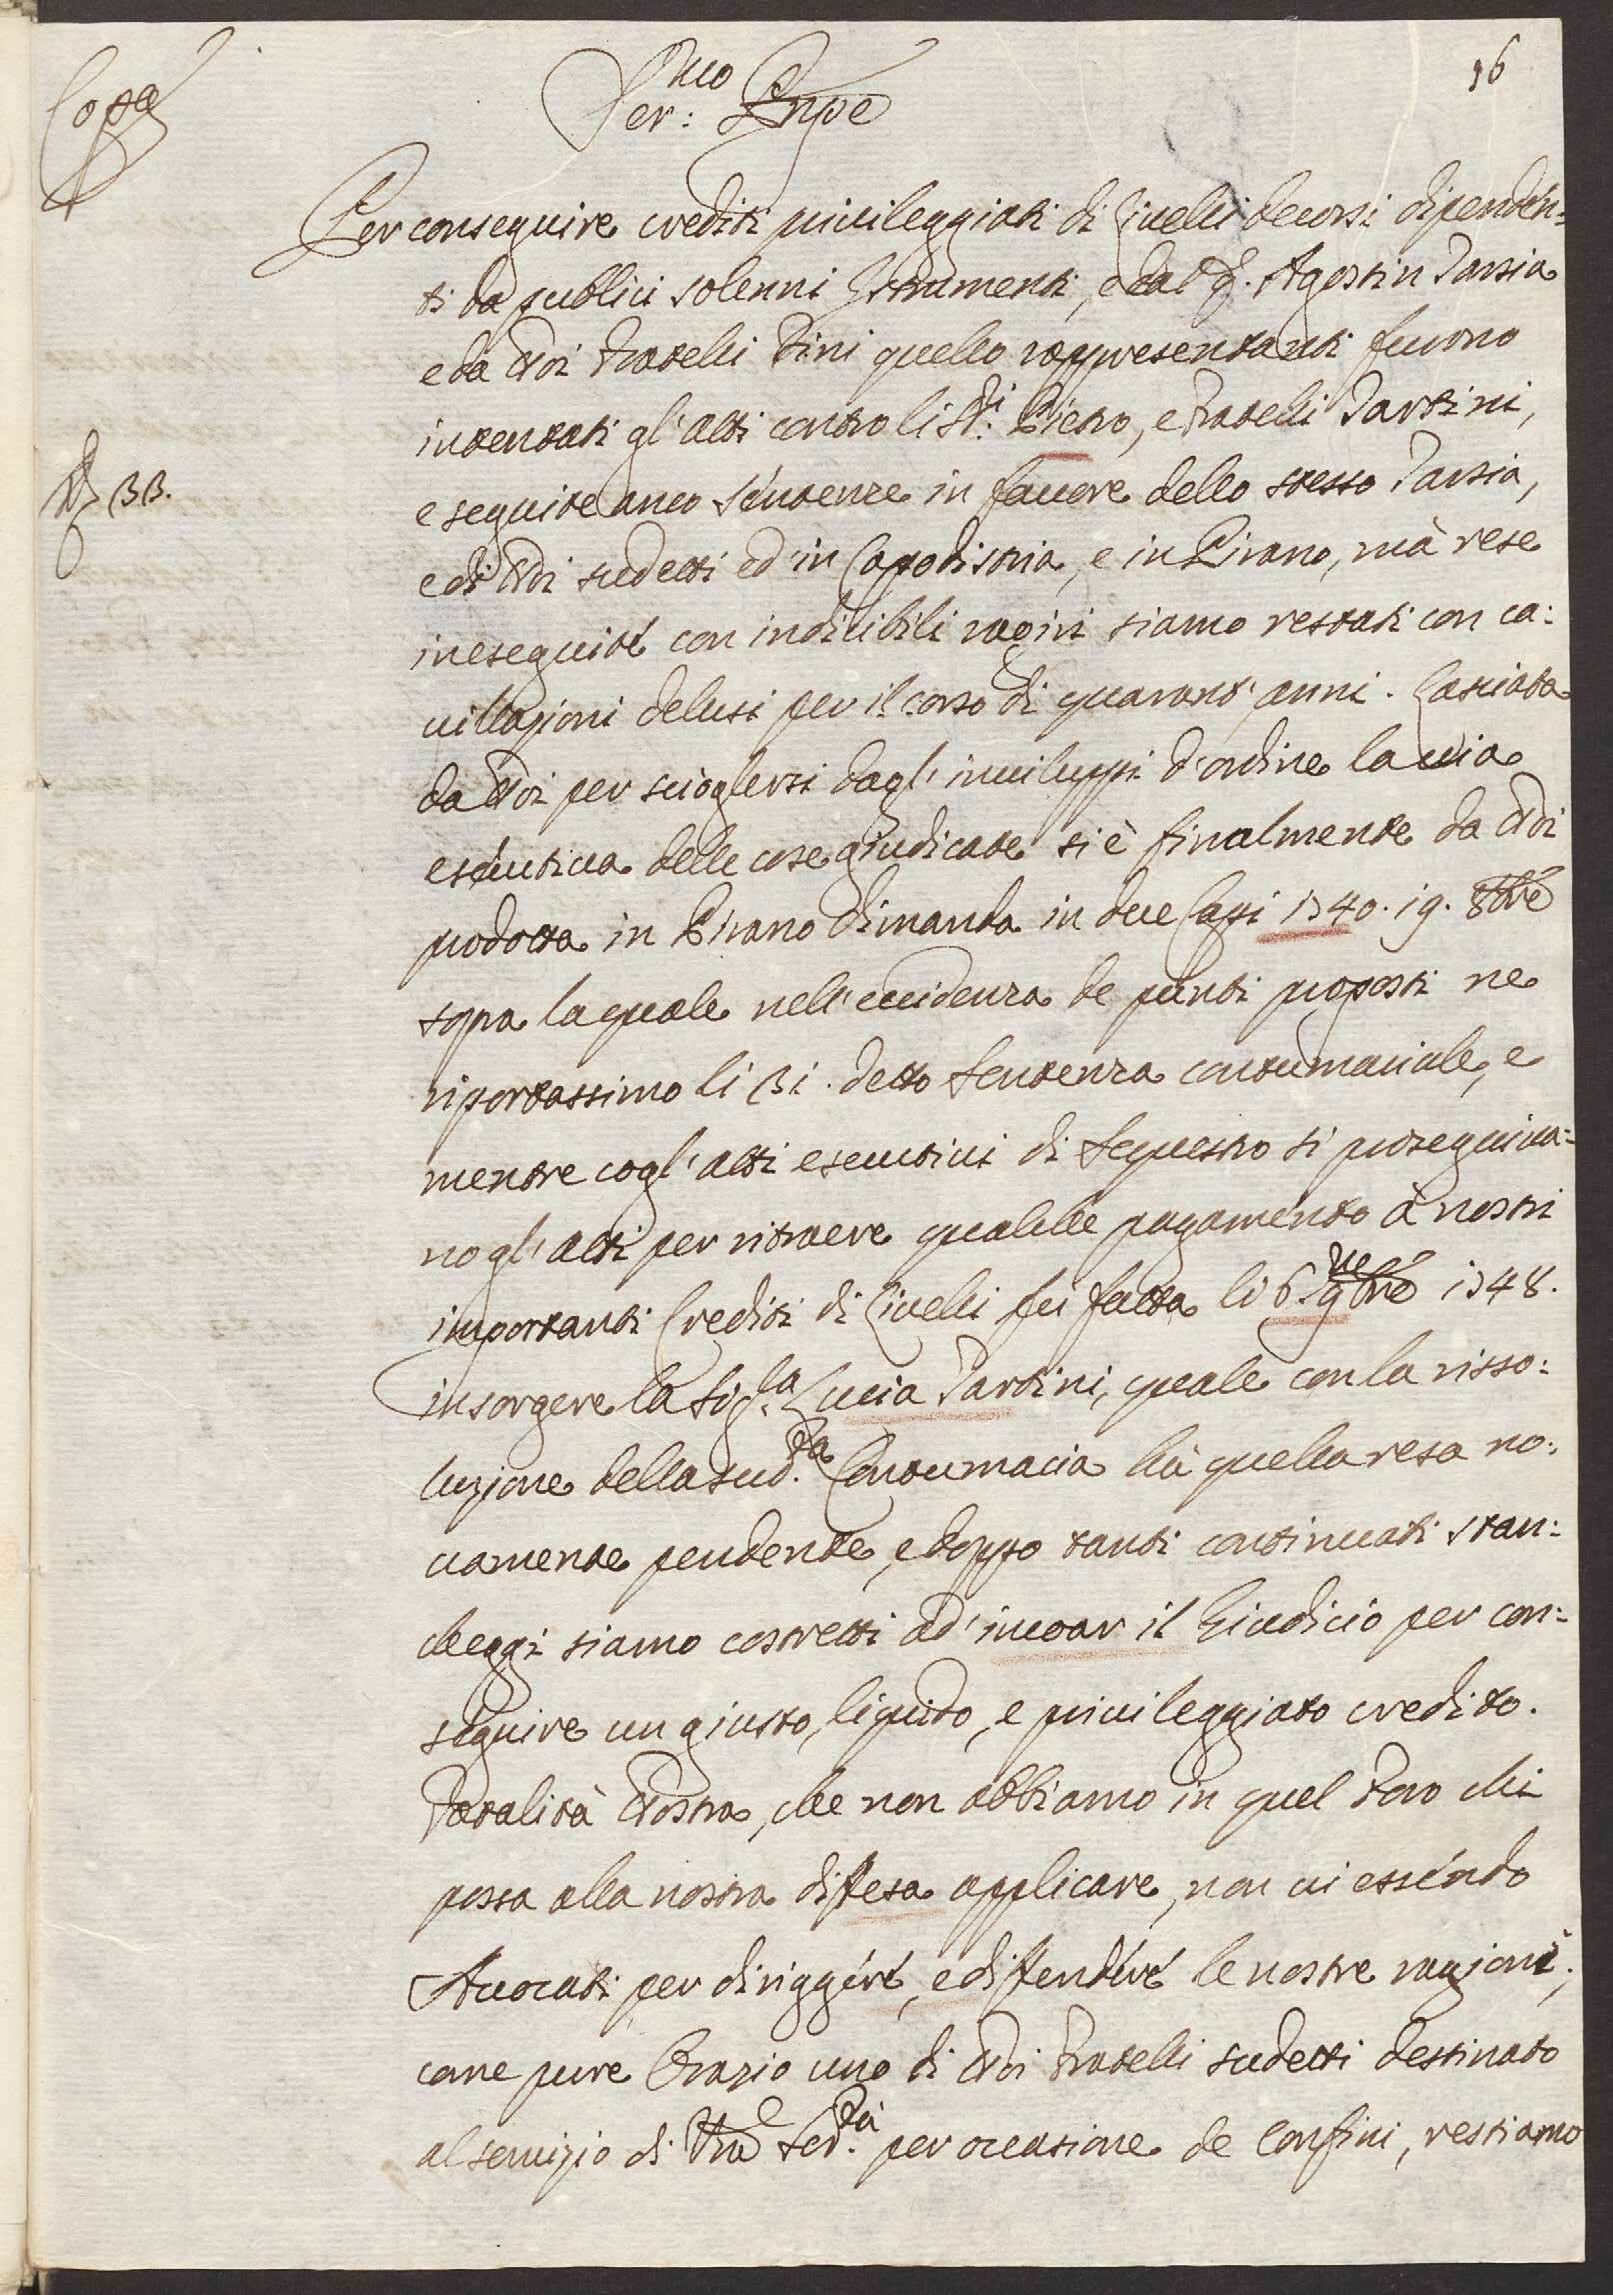 16
Copa
Ser:mo Prnpe
Per conseguire crediti privileggiati di Livelli decorsi dipenden:
ti da publici solenni Istrumenti, e dal q. Agostin Tarsia
e da Noi Fratelli Fini quello rappresentanti furono
intentati gl'atti contro li SS:ri Pietro, e Fratelli Tartini,
BB.
e seguite anco sentenze in favore dello stesso Tarsia,
e di Noi sudetti ed' in Capodistria, e in Pirano, mà rese
ineseguite con indicibili raggiri siamo restati con ca:
villazioni delusi per il corso di quarant'anni. Lasciata
da Noi per sciogliersi dagl'inviluppi d'ordine la via
esecutiva delle cose giudicate si è finalmente da Noi
prodotta in Pirano dimanda in due Capi 1740. 19. 8bre
sopra la quale nell'evidenza de punti proposti ne
riportassimo li 31. detto Sentenza contumaciale, e
mentre cogl'atti esecutivi di Sequestro si proseguiva:
no gl'atti per ritraere qualche pagamento à nostri
importanti Crediti di Livelli fù fatta li 6. 9bre 1748.
insorgere la Sig.la Lucia Tartini, quale con la risso:
luzione della sud.ta Contumacia hà quella resa no:
vamente pendente, e doppo tanti continuati stan:
cheggi siamo costretti ad' incoar il Giudicio per con:
seguire un giusto, liquido, e privileggiato credito.
Fatalità Nostra, che non abbiamo in quel Foro chi
possa alla nostra diffesa applicare, non vi essendo
Avocati per diriggere, e diffendere le nostre ragioni;
come pure Orazio uno di Noi Fratelli sudetti destinato
al servizio di Vra Ser.tà per occasione de Confini, restiamo